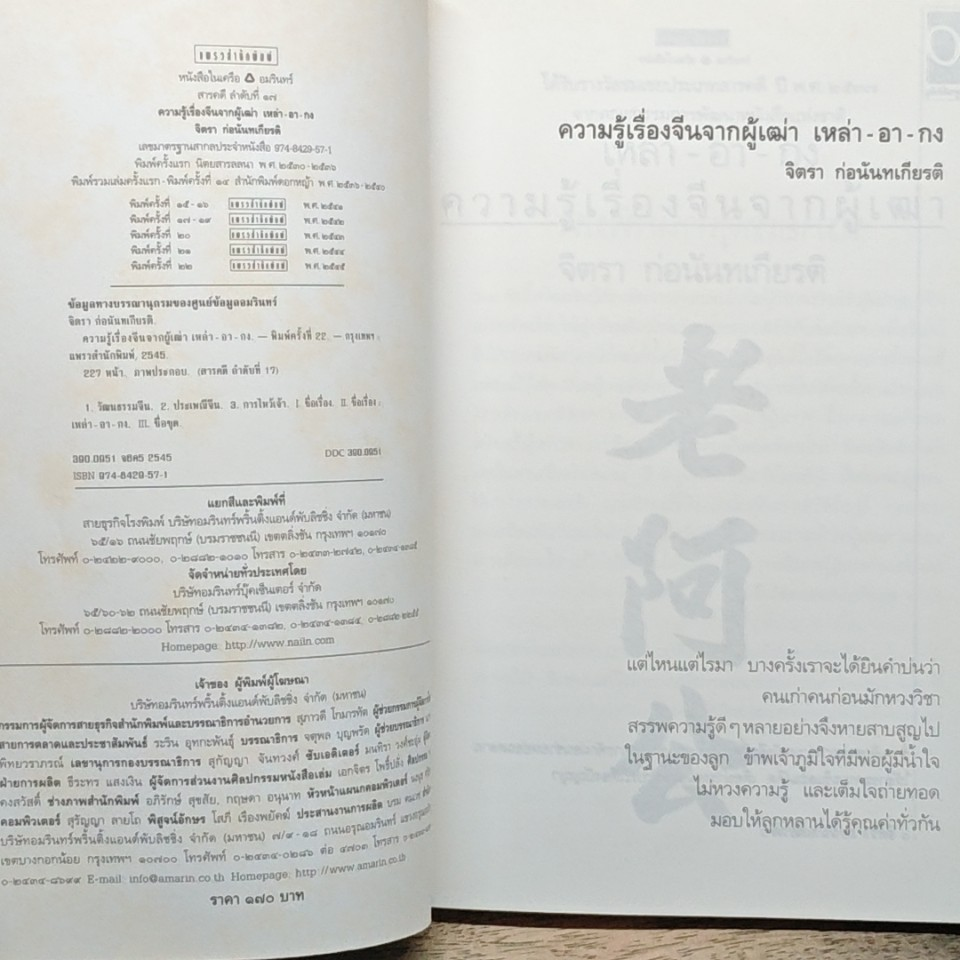 แพรวสำนักพิมพ์
หนังสือในเครือ อมรินทร์
สารคดี ลำดับที่ ๑๗
ความรู้เรื่องจีนจากผู้เฒ่า เหล่า - อา - กง
จิตรา ก่อนันทเกียรติ
เลขมาตรฐานสากลประจำหนังสือ 974-8429-57-1
พิมพ์ครั้งแรก นิตยสารลลนา พ.ศ. ๒๕๓๐ - ๒๕๓๖
พิมพ์รวมเล่มครั้งแรก - พิมพ์ครั้งที่ ๑๔ สำนักพิมพ์ดอกหญ้า พ.ศ. ๒๕๓๖ - ๒๕๔๐
พิมพ์ครั้งที่ ๑๕ - ๑๖ แพรวสำนักพิมพ์ พ.ศ. ๒๕๔๑
พิมพ์ครั้งที่ ๑๗ - ๑๙ แพรวสำนักพิมพ์ พ.ศ. ๒๕๔๒
พิมพ์ครั้งที่ ๒๐ แพรวสำนักพิมพ์ พ.ศ. ๒๕๔๓
พิมพ์ครั้งที่ ๒๑ แพรวสำนักพิมพ์ พ.ศ. ๒๕๔๔
พิมพ์ครั้งที่ ๒๒ แพรวสำนักพิมพ์ พ.ศ. ๒๕๔๕
ข้อมูลทางบรรณานุกรมของศูนย์ข้อมูลอมรินทร์
จิตรา ก่อนันทเกียรติ.
ความรู้เรื่องจีนจากผู้เฒ่า เหล่า - อา - กง. — พิมพ์ครั้งที่ 22. — กรุงเทพฯ :
แพรวสำนักพิมพ์, 2545.
227 หน้า. ภาพประกอบ. (สารคดี ลำดับที่ 17)
1. วัฒนธรรมจีน. 2. ประเพณีจีน. 3. การไหว้เจ้า. I. ชื่อเรื่อง. II. ชื่อเรื่อง :
เหล่า - อา - กง. III. ชื่อชุด.
390.0951 จ625 2545 DDC 390.0951
ISBN 974-8429-57-1
แยกสีและพิมพ์ที่
สายธุรกิจโรงพิมพ์ บริษัทอมรินทร์พริ้นติ้งแอนด์พับลิชชิ่ง จำกัด (มหาชน)
๖๕/๑๖ ถนนชัยพฤกษ์ (บรมราชชนนี) เขตตลิ่งชัน กรุงเทพฯ ๑๐๑๗๐
โทรศัพท์ ๐-๒๔๒๒-๙๐๐๐, ๐-๒๘๘๒-๑๐๑๐ โทรสาร ๐-๒๔๓๓-๒๗๔๒, ๐-๒๔๓๔-๑๓๘๕
จัดจำหน่ายทั่วประเทศโดย
บริษัทอมรินทร์บุ๊คเซ็นเตอร์ จำกัด
๖๕/๖๐-๖๒ ถนนชัยพฤกษ์ (บรมราชชนนี) เขตตลิ่งชัน กรุงเทพฯ ๑๐๑๗๐
โทรศัพท์ ๐-๒๘๘๒-๒๐๐๐ โทรสาร ๐-๒๔๓๔-๑๓๘๒, ๐-๒๔๓๔-๑๓๘๔,
Homepage: http://www.naiin.com
เจ้าของ ผู้พิมพ์ผู้โฆษณา
บริษัทอมรินทร์พริ้นติ้งแอนด์พับลิชชิ่ง จำกัด (มหาชน)
กรรมการผู้จัดการสายธุรกิจสำนักพิมพ์และบรรณาธิการอำนวยการ สุภาวดี โกมารทัต
สายการตลาดและประชาสัมพันธ์ ระริน อุทกะพันธุ์ บรรณาธิการ จตุพล บุญพรัด
พิทยวราภรณ์ เลขานุการกองบรรณาธิการ สุกัญญา จันทวงศ์ ซับเอดิเตอร์ มนทิรา
ฝ่ายการผลิต ธีระทร แสงเงิน ผู้จัดการส่วนงานศิลปกรรมหนังสือเล่ม เอกจิตร โพธิ์ปลั่ง
คงสวัสดิ์ ช่างภาพสำนักพิมพ์ อภิรักษ์ สุขสัย, กฤษดา อนุนาท หัวหน้าแผนกคอมพิวเตอร์
คอมพิวเตอร์ สุรัญญา ลายโถ พิสูจน์อักษร โสภี เรืองพยัคฆ์ ประสานงานการผลิต
บริษัทอมรินทร์พริ้นติ้งแอนด์พับลิชชิ่ง จำกัด (มหาชน) ๗/๙-๑๘ ถนนอรุณอมรินทร์
เขตบางกอกน้อย กรุงเทพฯ ๑๐๗๐๐ โทรศัพท์ ๐-๒๔๓๔-๐๒๘๖ ต่อ ๔๗๐๓ โทรสาร
๐-๒๔๓๔-๘๖๙๙ E-mail: info@amarin.co.th Homepage: http://www.amarin.co.th
ราคา ๑๗๐ บาท
ความรู้เรื่องจีนจากผู้เฒ่า เหล่า - อา - กง
จิตรา ก่อนันทเกียรติ
แต่ไหนแต่ไรมา บางครั้งเราจะได้ยินคำบ่นว่า
คนเก่าคนก่อนมักหวงวิชา
สรรพความรู้ดี ๆ หลายอย่างจึงหายสาบสูญไป
ในฐานะของลูก ข้าพเจ้าภูมิใจที่มีพ่อผู้มีน้ำใจ
ไม่หวงความรู้ และเต็มใจถ่ายทอด
มอบให้ลูกหลานได้รู้คุณค่าทั่วกัน